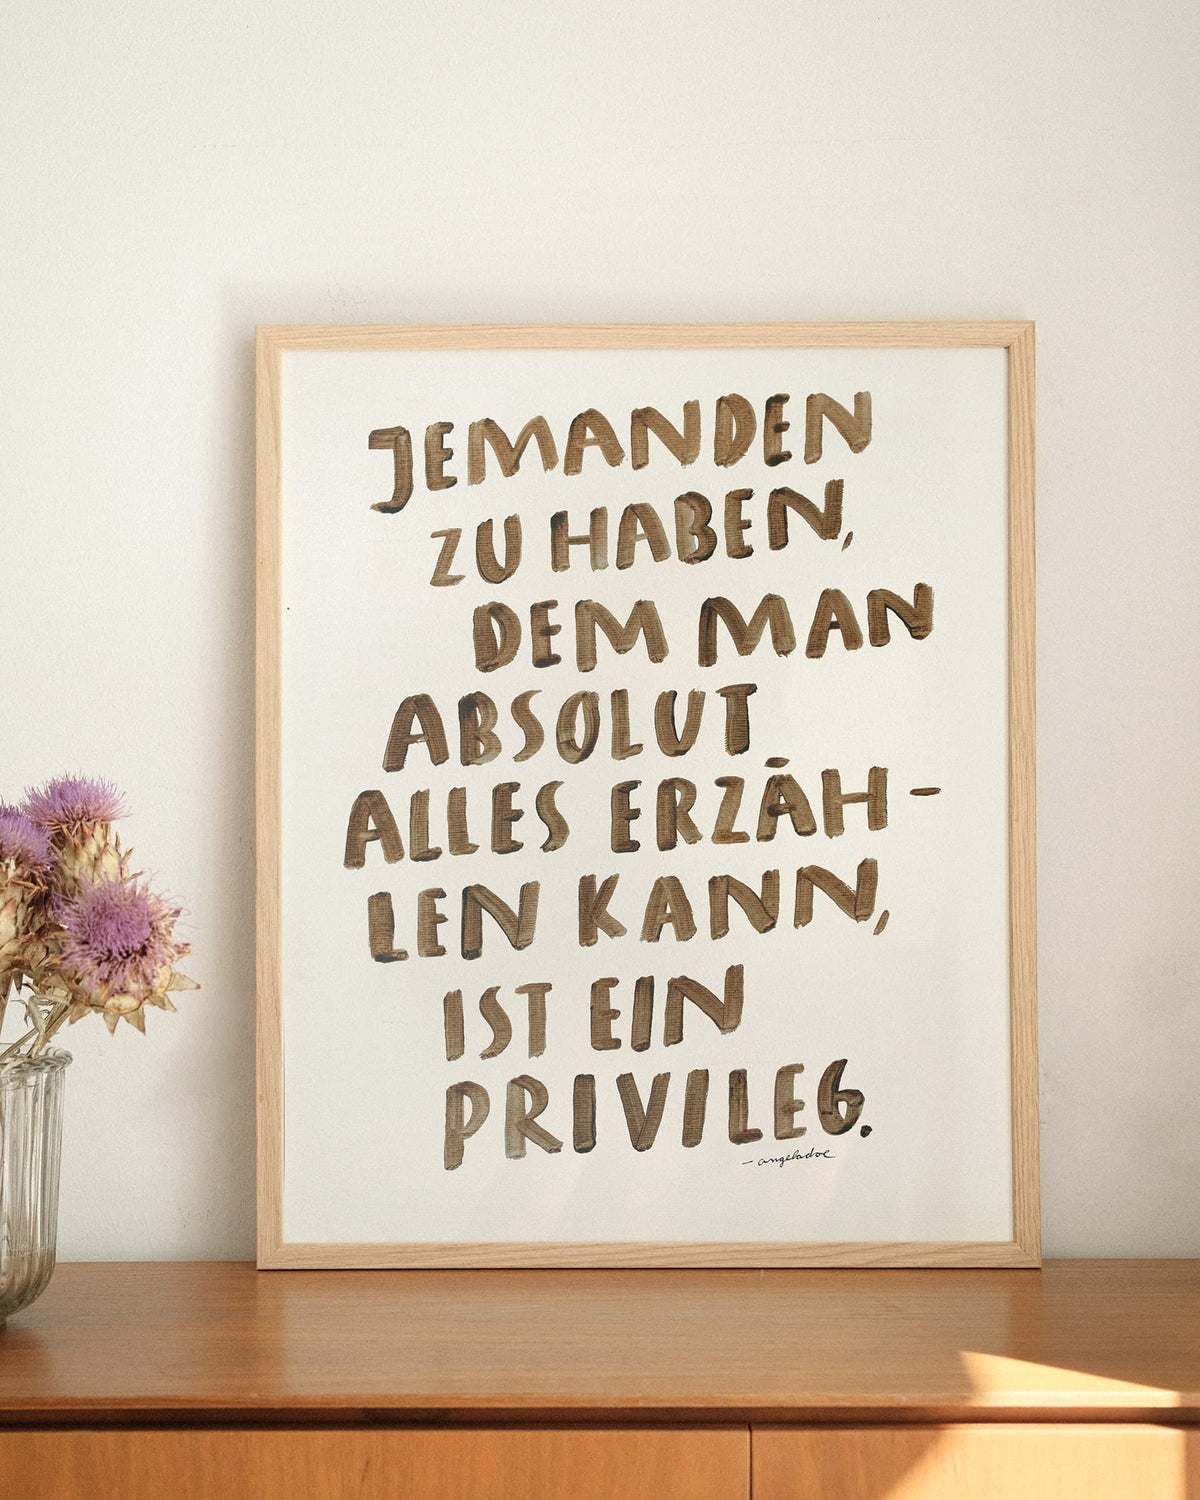 JEMANDEN
ZU HABEN,
DEM MAN
ABSOLUT
ALLES ERZÄH-
LEN KANN,
IST EIN
PRIVILEG.
- angeladoe